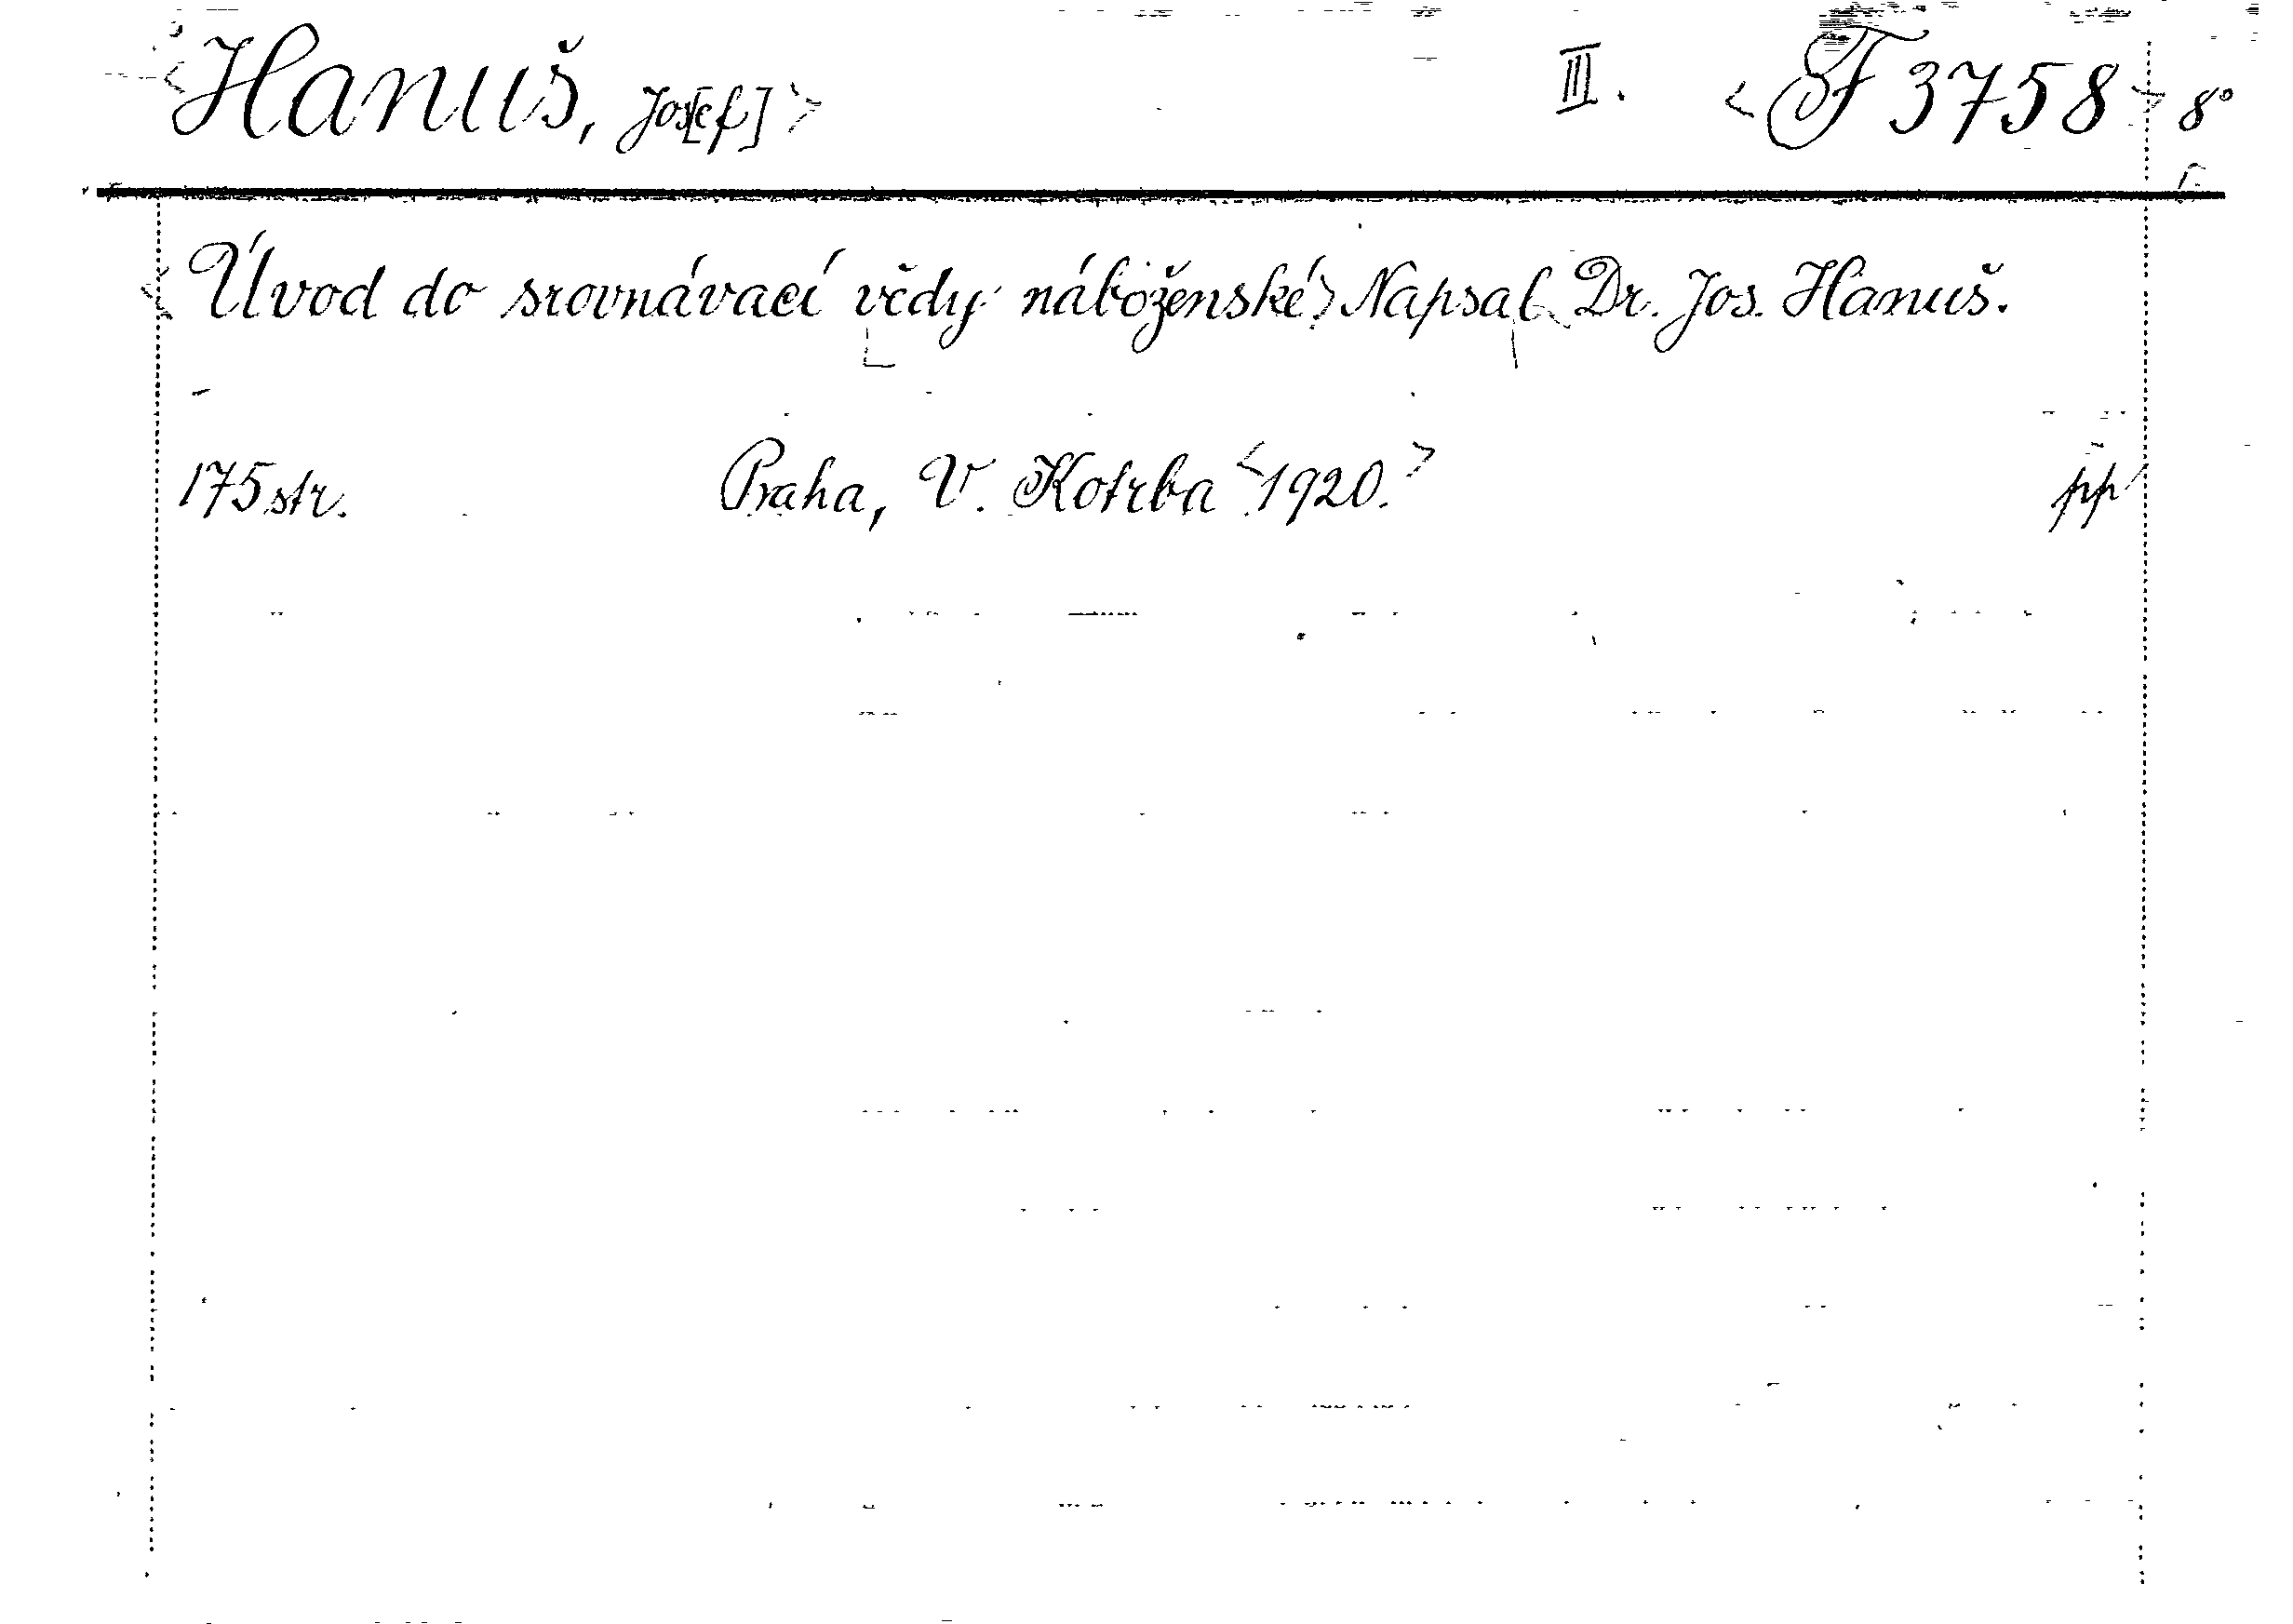 <Hanuš, Jos[ef]> III. <F 3758> 8°
<Úvod do srovnávací vědy náboženské> Napsal Dr. Jos. Hanuš.
175 str. Praha, V. Kotrba <1920.> pp